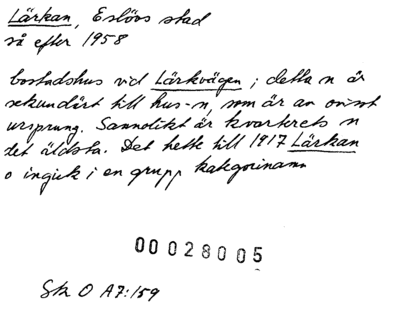 Lärkan, Eslövs stad
så efter 1958
bostadshus vid Lärkvägen; detta n är
sekundärt till hus-n, som är an ovisst
ursprung. Sannolikt är kvarterets n
det äldsta. Det hette till 1917 Lärkan
o ingick i en grupp kategorinamn
00028005
Sk O A7:159